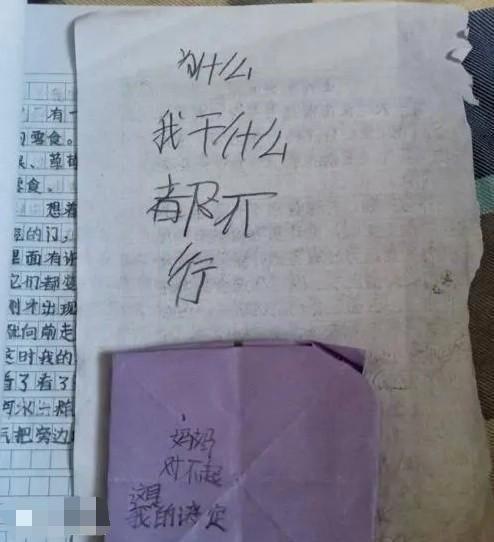 有一
零食。
、草莓
零食。
想着
的门,
里面有许
它们都
刚才出现
就向前走
这时我的
看了看了
河水一般
把旁边
为什么
我干什么
都不
行
妈妈
对不起
这是
我的诀定